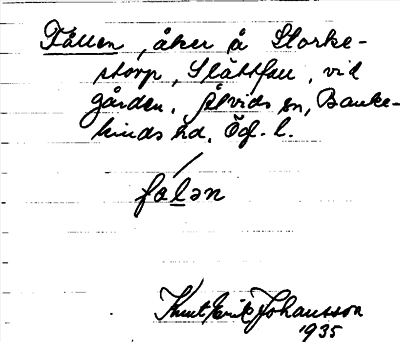 Fållen, åker å Storke-
storp, Slättfall, vid
gården. Åtvids sn, Banke-
kinds hd. Ög. l.
folən
Knut Erik Johansson
1935